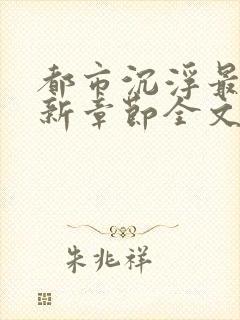 都市沉浮最
新章节全文
朱兆祥